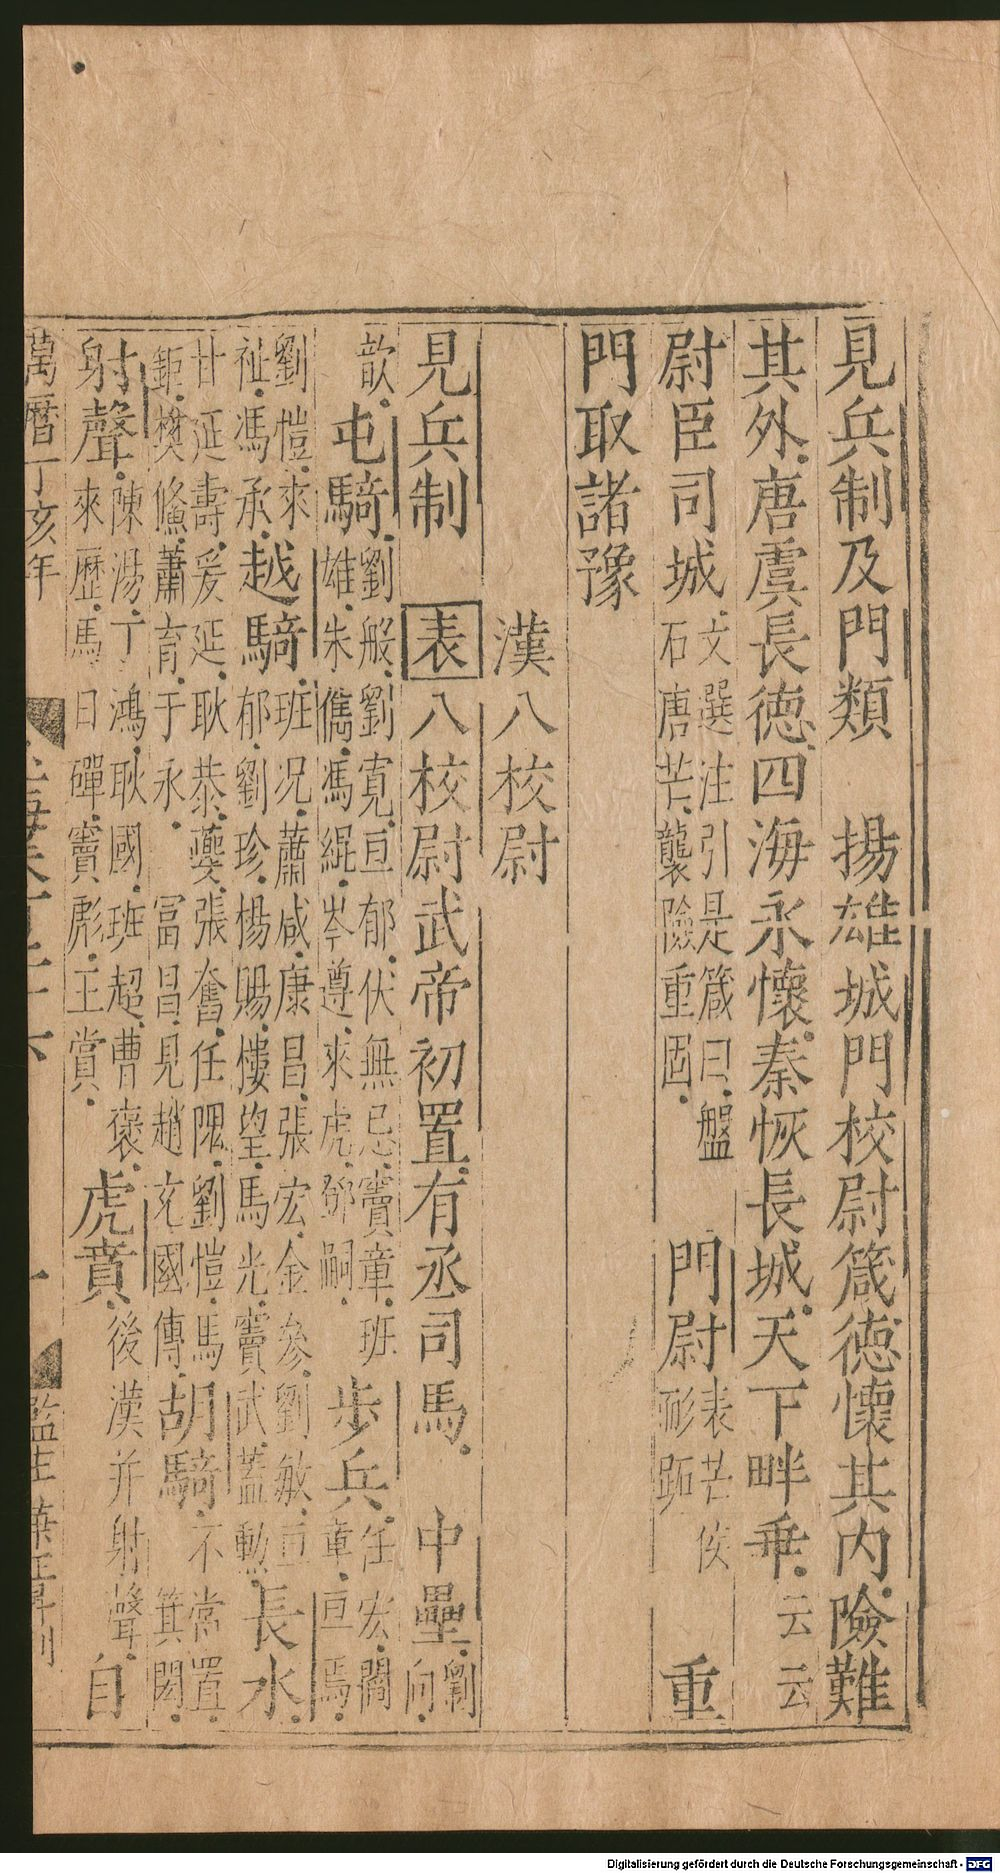 見兵制及門類　揚雄城門校尉箴德懷其内險難
其外唐虞長德四海永懷秦恢長城天下畔乖云云
尉臣司城文選注引是箴曰盤
石唐芒襲險重固　門尉表芒佼
彨距　重
門取諸豫
漢八校尉
見兵制　表八校尉武帝初置有丞司馬　中壘劉
向
歆　屯騎劉般劉寬亘郁伏無忌竇章班
雄朱儁馮緄岑遵來虎鄧嗣　步兵任宏闟
章亘焉
劉愷來
祉馮承　越騎班况蕭咸康昌張宏金參劉敏亘
郁劉珍楊賜樓望馬光竇武蓋勲　長水
甘延壽爰延耿恭夔張奮任隗劉愷馬
鉅樊鯈蕭育于永　冨昌見趙充國傳　胡騎不常置
箕閎
射聲陳湯丁鴻耿國班超曹褒
來歷馬日磾竇彪王賞　虎賁後漢并射聲　自
萬曆丁亥年
一